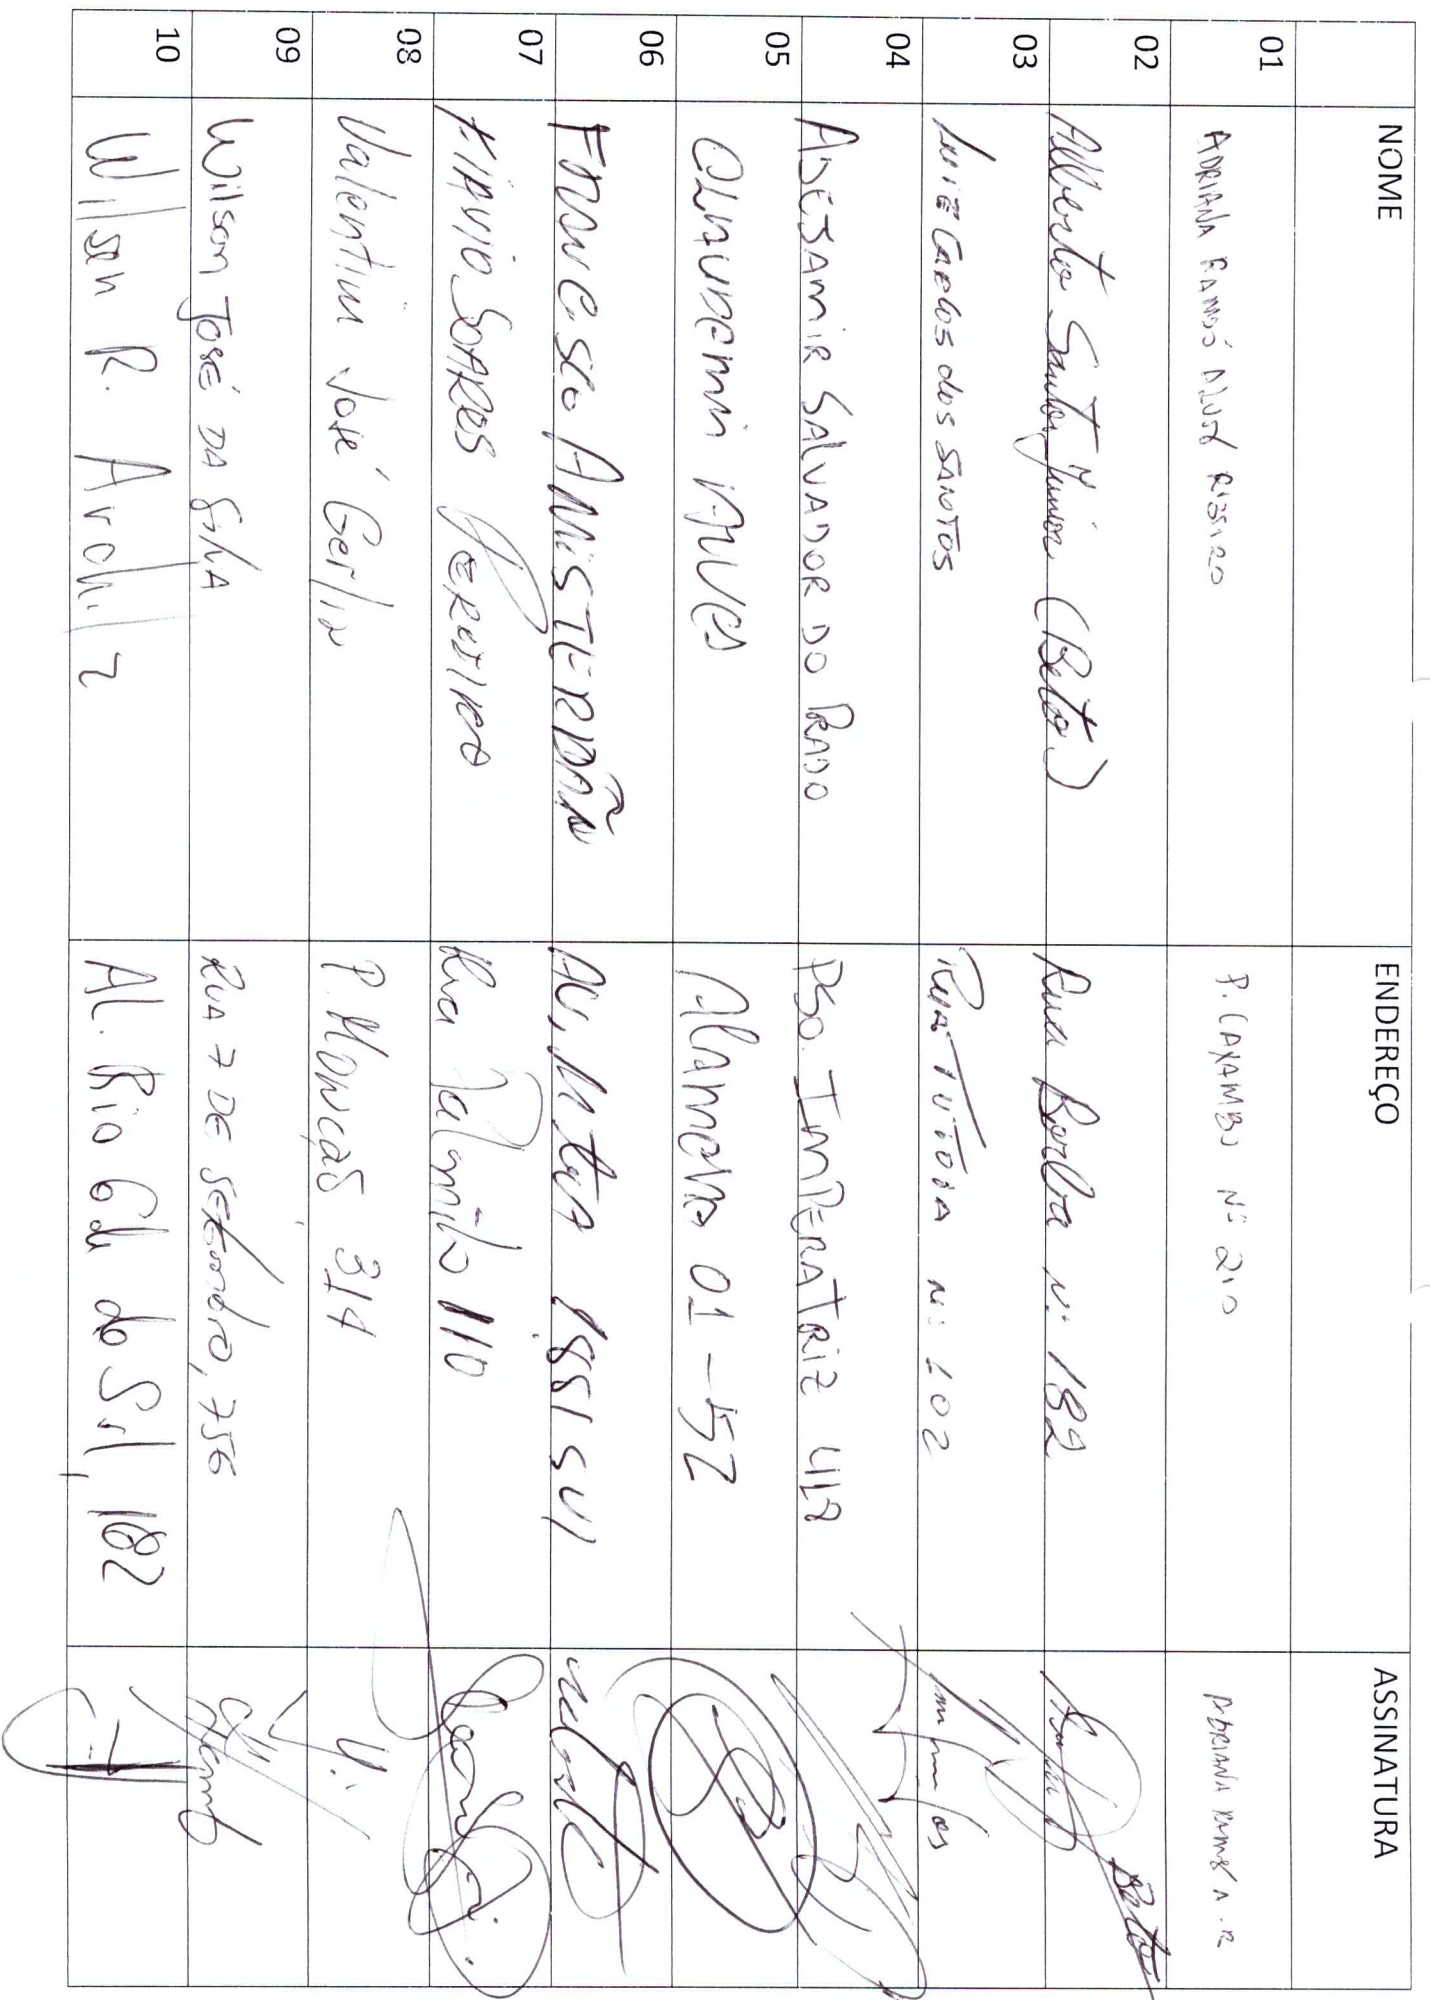 NOME ENDEREÇO ASSINATURA
01 ADRIANA RAMOS RIBEIRO P. CAXAMBU Nº 210 ADRIANA RAMOS A. R
02 Alberto Santos Júnior (Beto) Rua Borba Nº 182 Beto
03 LUIZ CARLOS dos SANTOS RUA TUTOIA Nº 102
04 ADESAMIR SALVADOR DO PRADO PSO. IMPERATRIZ 418
05 CLAUDEMIR ALVES Alameda 01-52
06 FRANCISCO AMISTERDÃN AV. 1881 SUL
07 FLAVIO SOARES FERREIRA Rua Palmito 110
08 Valentim José Gerlin P. Monção 314
09 Wilson José DA SilvA RUA 7 DE SETEMBRO, 756
10 Wilson R. Archilz Al. Rio G. do Sul, 182